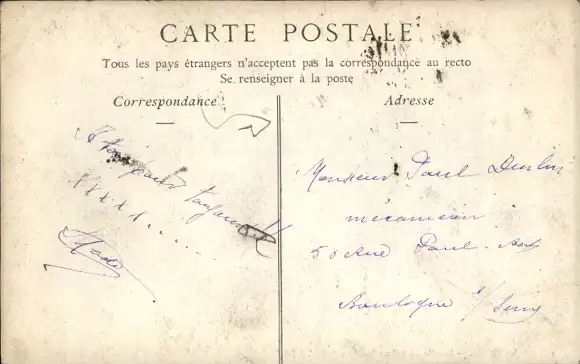 CARTE POSTALE
Tous les pays étrangers n'acceptent pas la correspondance au recto
Se renseigner à la poste
Correspondance
Adresse
x x x x x.....
Monsieur Paul
mécanicien
50 Rue Paul
Boulogne s/ Seine